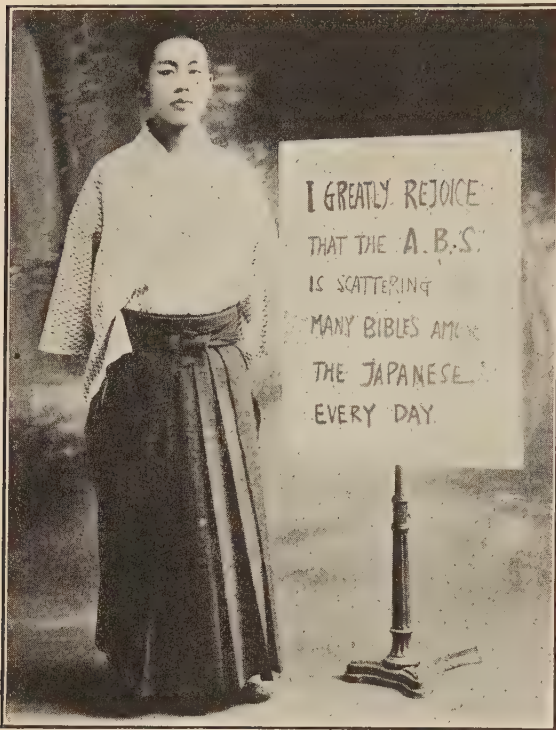 I GREATLY REJOICE
THAT THE A.B.S.
IS SCATTERING
MANY BIBLES
THE JAPANESE
EVERY DAY.